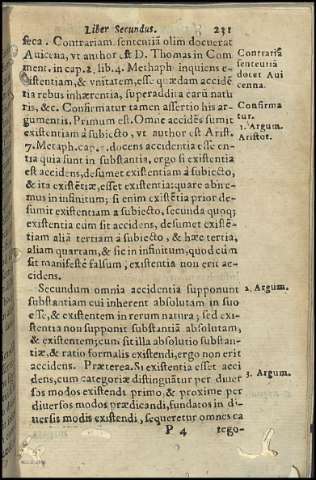 Liber Secundus. 231
seca. Contrariam sententiã olim docuerat
Auicena, vt author est D. Thomas in Com
ment. in cap. 2. lib. 4. Metaph. inquiens e-
xistentiam, & vnitatem, esse quædam accidẽ
tia rebus inhærentia, superaddita carũ natu
ris, &c. Confirmatur tamen assertio his ar-
gumentis. Primum est. Omne accidẽs sumit
existentiam à subiecto, vt author est Arist.
7. Metaph. cap. 1. docens accidentia esse en-
tia quia sunt in substantia, ergo si existentia
est accidens, desumet existentiam à subiecto,
& ita existẽtiæ, esset existentia: quare abire-
mus in infinitum; si enim existẽtia prior de-
sumit existentiam à subiecto, secunda quoq;
existentia cum sit accidens, desumet existẽ-
tiam aliã tertiam á subiecto, & hæc tertia,
aliam quartam, & sic in infinitum, quod cùm
sit manifestè falsum, existentia non erit ac-
cidens.
Secundum omnia accidentia supponunt
substantiam cui inherent absolutam in suo
esse, & existentem in rerum natura; sed exi-
stentia non supponit substantiã absolutam,
& existentem; cum sit illa absolutio substan-
tiæ, & ratio formalis existendi, ergo non erit
accidens. Præterea. Si existentia esset acci
dens, cum categoriæ distinguãtur per diuer
sos modos existendi primo, & proxime per
diuersos modos prædicandi, fundatos in di-
uersis modis existendi, sequeretur omnes ca
P 4 tego-
Contrariã
sentẽtiã
docet Aui
cenna.
Confirma
tur.
1. Argum.
Aristot.
2. Argum.
3. Argum.